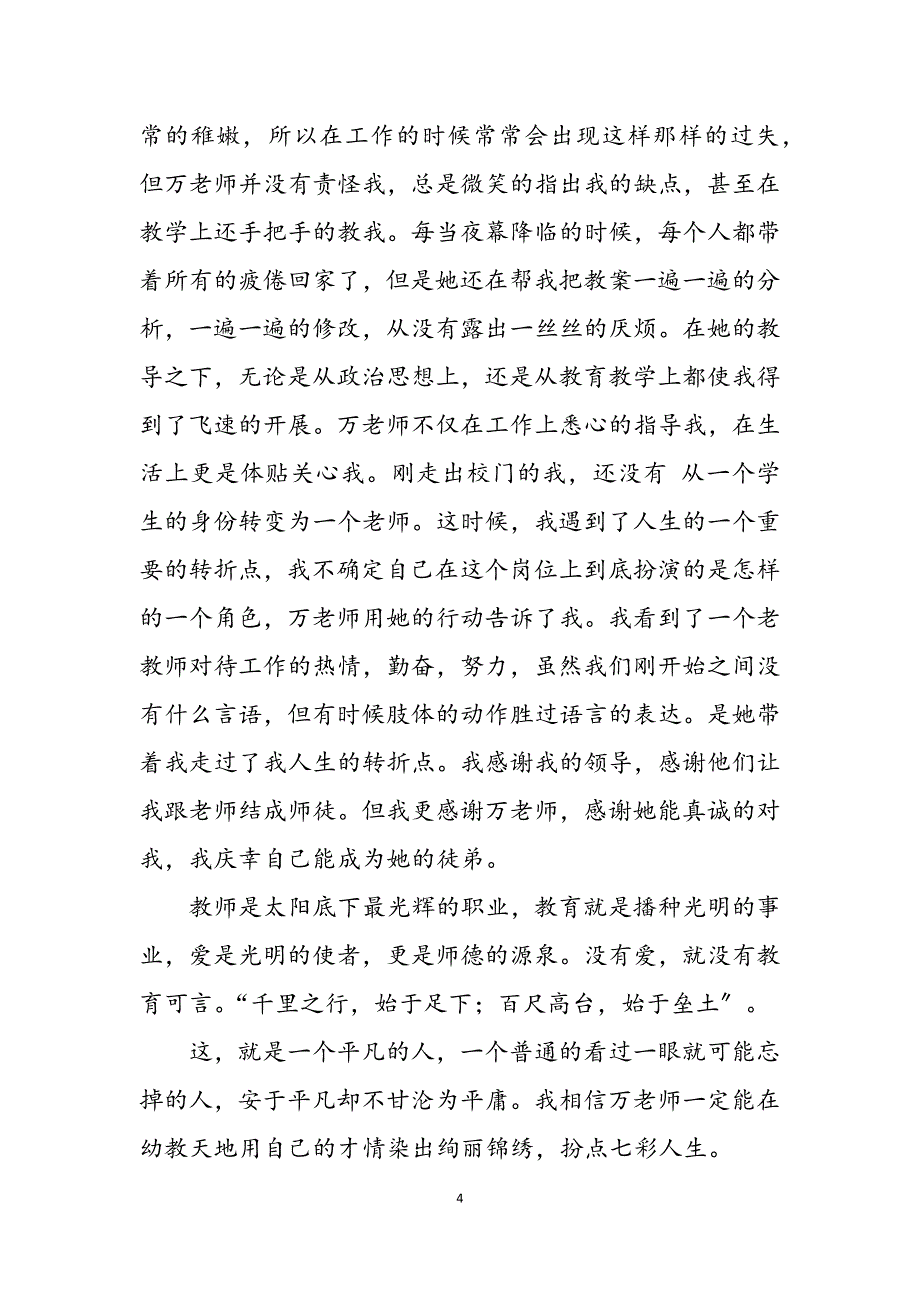 常的稚嫩，所以在工作的时候常常会出现这样那样的过失，
但万老师并没有责怪我，总是微笑的指出我的缺点，甚至在
教学上还手把手的教我。每当夜幕降临的时候，每个人都带
着所有的疲倦回家了，但是她还在帮我把教案一遍一遍的分
析，一遍一遍的修改，从没有露出一丝丝的厌烦。在她的教
导之下，无论是从政治思想上，还是从教育教学上都使我得
到了飞速的开展。万老师不仅在工作上悉心的指导我，在生
活上更是体贴关心我。刚走出校门的我，还没有 从一个学
生的身份转变为一个老师。这时候，我遇到了人生的一个重
要的转折点，我不确定自己在这个岗位上到底扮演的是怎样
的一个角色，万老师用她的行动告诉了我。我看到了一个老
教师对待工作的热情，勤奋，努力，虽然我们刚开始之间没
有什么言语，但有时候肢体的动作胜过语言的表达。是她带
着我走过了我人生的转折点。我感谢我的领导，感谢他们让
我跟老师结成师徒。但我更感谢万老师，感谢她能真诚的对
我，我庆幸自己能成为她的徒弟。
教师是太阳底下最光辉的职业，教育就是播种光明的事
业，爱是光明的使者，更是师德的源泉。没有爱，就没有教
育可言。“千里之行，始于足下；百尺高台，始于垒土〞。
这，就是一个平凡的人，一个普通的看过一眼就可能忘
掉的人，安于平凡却不甘沦为平庸。我相信万老师一定能在
幼教天地用自己的才情染出绚丽锦绣，扮点七彩人生。
4